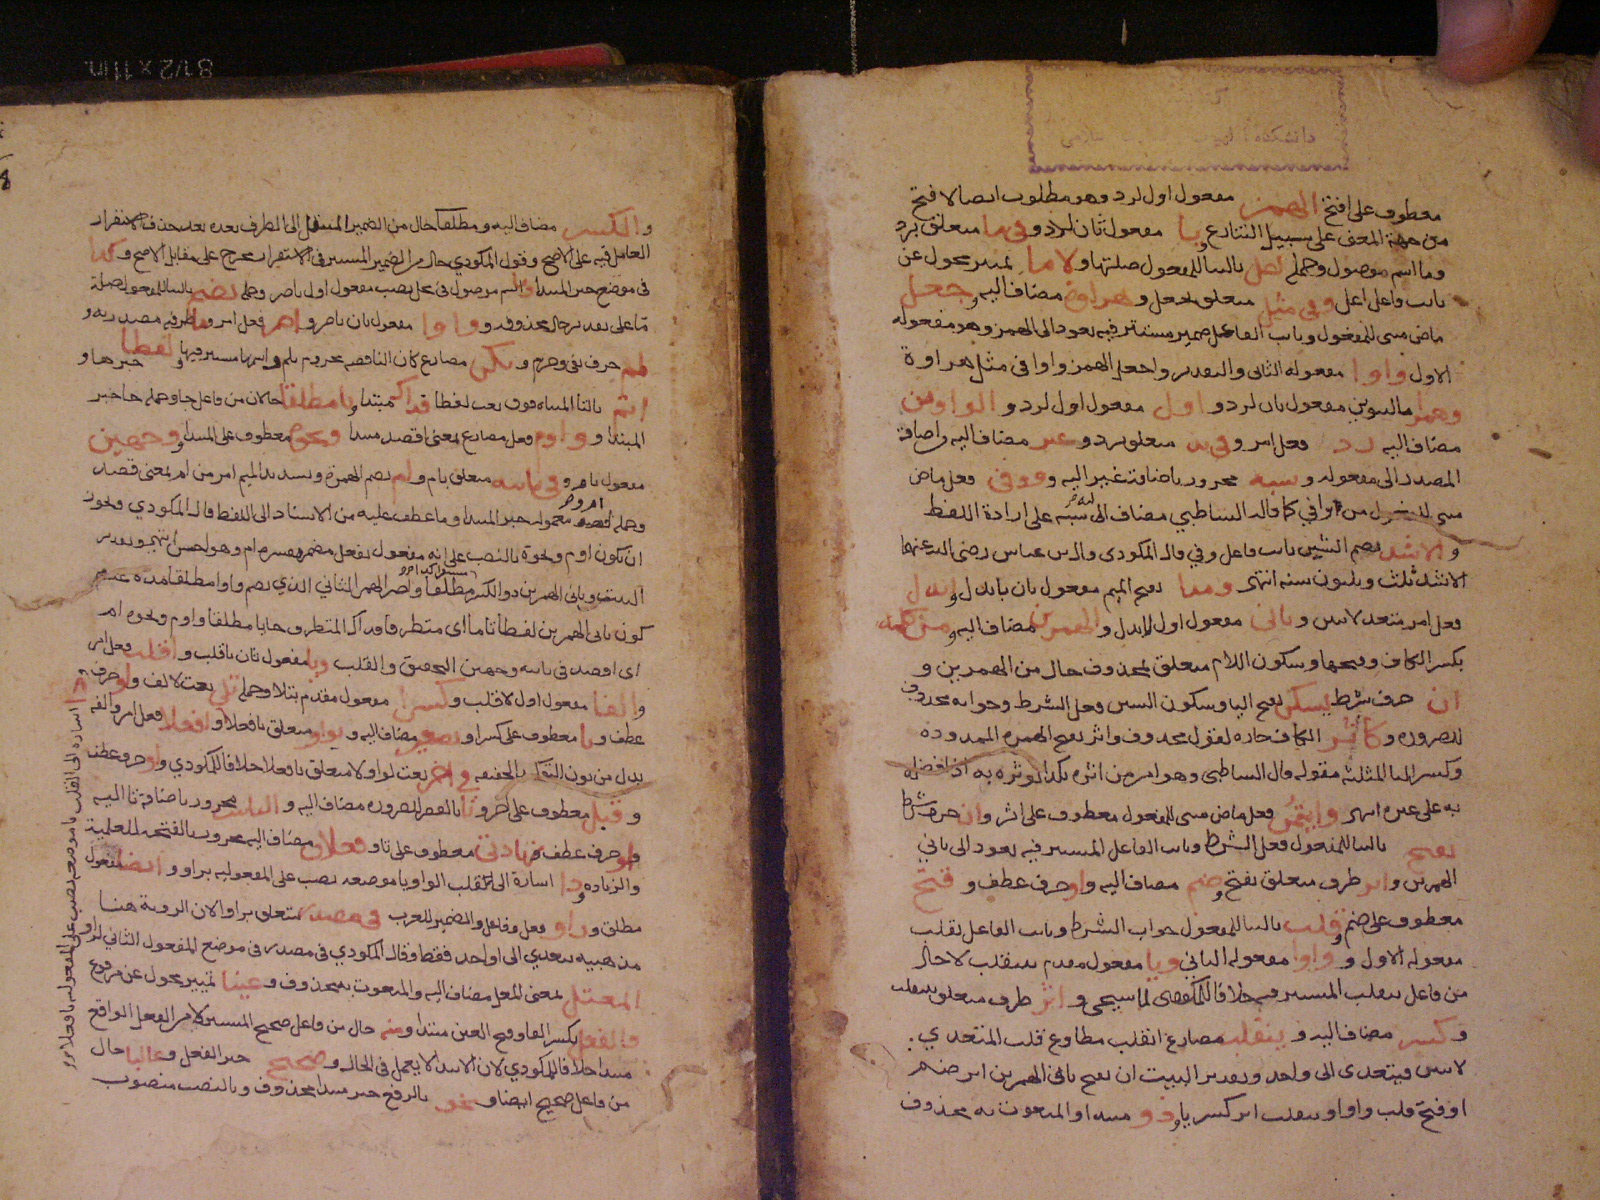 معطوف على افتح الهمز مفعول اول لرد وهو مطلوب ايضا لافتح
من جهة المعنى على سبيل التنازع ويا مفعول ثان لرد وفي ما متعلق برد
وما اسم موصول وجملة اعل بالبنا للمفعول صلتها ولاما تمييز محول عن
نائب فاعل اعل وفي مثل متعلق بجعل وهراوة مضاف اليه وجعل
ماض مبنى للمفعول ونائب الفاعل ضمير مستتر فيه يعود الى الهمز وهو مفعوله
الاول وواوا مفعوله الثاني والتقدير واجعل الهمز واوا في مثل هراوة
وهمزا بالتنوين مفعول ثان لرد واول مفعول اول لرد والواوين
مضاف اليه رد فعل امر وفي بدء متعلق برد وغير مضاف اليه واضافة
المصدر الى مفعوله وشبه مجرور باضافة غير اليه ووفي فعل ماض
مبنى للمفعول من وافي كما قاله الشاطبي مضاف الى شبه على ارادة اللفظ
والاشد بضم الشين نائب فاعل وفي قال المكودي وقال ابن عباس رضى الله عنهما
الاشد ثلث وثلثون سنة انتهى ومدا بفتح الميم مفعول ثان بابدل وابدل
فعل امر متعد لاثنين وثاني مفعول اول لابدل والهمزين مضاف اليه ومن كلمة
بكسر الكاف وفتحها وسكون اللام متعلق بمحذوف حال من الهمزين و
ان حرف شرط يسكن بفتح اليا وسكون السين فعل الشرط وجوابه محذوف
للضرورة وكآثر الكاف جارة لقول محذوف واثر بفتح الهمزة الممدودة
وكسر الثا المثلثة مقوله قال الشاطبي وهو امر من اثره بكذا يوثره به اذا فضله
به على غيره انتهى وايتمن فعل ماض مبنى للمفعول معطوف على اثر وان حرف شرط
يفتح بالبنا للمفعول فعل الشرط ونائب الفاعل المستتر فيه يعود الى ثاني
الهمزين واثر ظرف متعلق بيفتح وضم مضاف اليه واو حرف عطف وفتح
معطوف على ضم وقلب بالبنا للمفعول جواب الشرط ونائب الفاعل بقلب
مفعوله الاول وواوا مفعوله الثاني ويا مفعول مقدم بينقلب لا حال
من فاعل ينقلب المستتر فيه خلافا للمكودي لما سيجي واثر ظرف متعلق بينقلب
وكسر مضاف اليه وينقلب مضارع انقلب مطاوع قلب المتعدي
لاثنين فيتعدى الى واحد وتقدير البيت ان يفتح ثاني الهمزين اثر ضم
او فتح قلب واوا وينقلب اثر كسر يا وذو مبتدا والمنعوت به محذوف
والكسر مضاف اليه ومطلقا حال من الضمير المنتقل الى الظرف بعده بعد حذف الاستقرار
العامل فيه على الاصح وقول المكودي حال من الضمير المستتر في الاستقرار مخرج على مقابل الاصح وكذا
في موضع خبر المبتدا وما اسم موصول في محل نصب مفعول اول باصر وجملة يضم بالبنا للمفعول صلة
ما على تقدير حال محذوفة وواوا مفعول ثان باصر واصر فعل امر وما ظرفية مصدرية و
لم حرف نفي وجزم ويكن مضارع كان الناقصة مجزوم بلم واسمها مستتر فيها ولفظا خبرها و
اتم بالتا المثناة فوق نعت لفظا فذاك مبتدا ويا مطلقا حالان من فاعل جا وجملة جا خبر
المبتدا وواوم فعل مضارع بمعنى اقصد مبتدا ونحوه معطوف على المبتدا ووجهين
مفعول بام وفي ثانيه متعلق بام وام بضم الهمزة وتشديد الميم امر من ام بمعنى قصد
وجملة ام ومعموله خبر المبتدا وما عطف عليه من الاسناد الى اللفظ قال المكودي ويجوز
ان يكون اوم ونحوه بالنصب على انه مفعول بفعل مضمر يفسره ام وهو احسن انتهى وتقدير
البيت وثاني الهمزين ذو الكسر مطلقا واصر الهمز الثاني الذي يضم واوا مطلقا مدة عدم
كون ثاني الهمزين لفظا تاما اى متطرفا وذاك المتطرف جايا مطلقا واوم ونحوه ام
اى اقصد في ثانيه وجهين التحقيق والقلب ويا مفعول ثان باقلب واقلب فعل امر
والفا مفعول اول لاقلب وكسرا مفعول مقدم بتلا وجملة تلا نعت لالف واو حرف
عطف ويا معطوف على كسرا وتصغير مضاف اليه وبواو متعلق بافعلا وافعلا فعل امر والفه
بدل من نون التوكيد الخفيفة وفي اخر نعت لواو لا متعلق بافعلا خلافا للمكودي واو حرف عطف
وقبل معطوف على اخر وتا بالقصر للضرورة مضاف اليه والتانيث مجرور باضافة تا اليه
واو حرف عطف وزيادتي معطوف على تا وفعلان مضاف اليه مجرور بالفتحة للعلمية
والزيادة وذا اشارة الى القلب الواو يا موضعه نصب على المفعولية براوا وايضا مفعول
مطلق وراوا فعل وفاعل والضمير للعرب وفي مصدر متعلق براوا لان الروية هنا
مذهبية تتعدى الى واحد فقط وقال المكودي في مصدر في موضع المفعول الثاني لراوا
المعتل بمعنى المعل مضاف اليه والمنعوت به محذوف وعينا تمييز محول عن مرفوع
والفعل بكسر الفا وفتح العين مبتدا ومنه حال من فاعل صحيح المستتر لا من الفعل الواقع
مبتدا خلافا للمكودي لان الابتدا لا يعمل في الحال وصحيح خبر الفعل وغالبا حال
من فاعل صحيح ايضا ونحو بالرفع خبر مبتدا محذوف وبالنصب منصوب
اشارة الى القلب يا موضعه نصب على المفعولية بافعلا